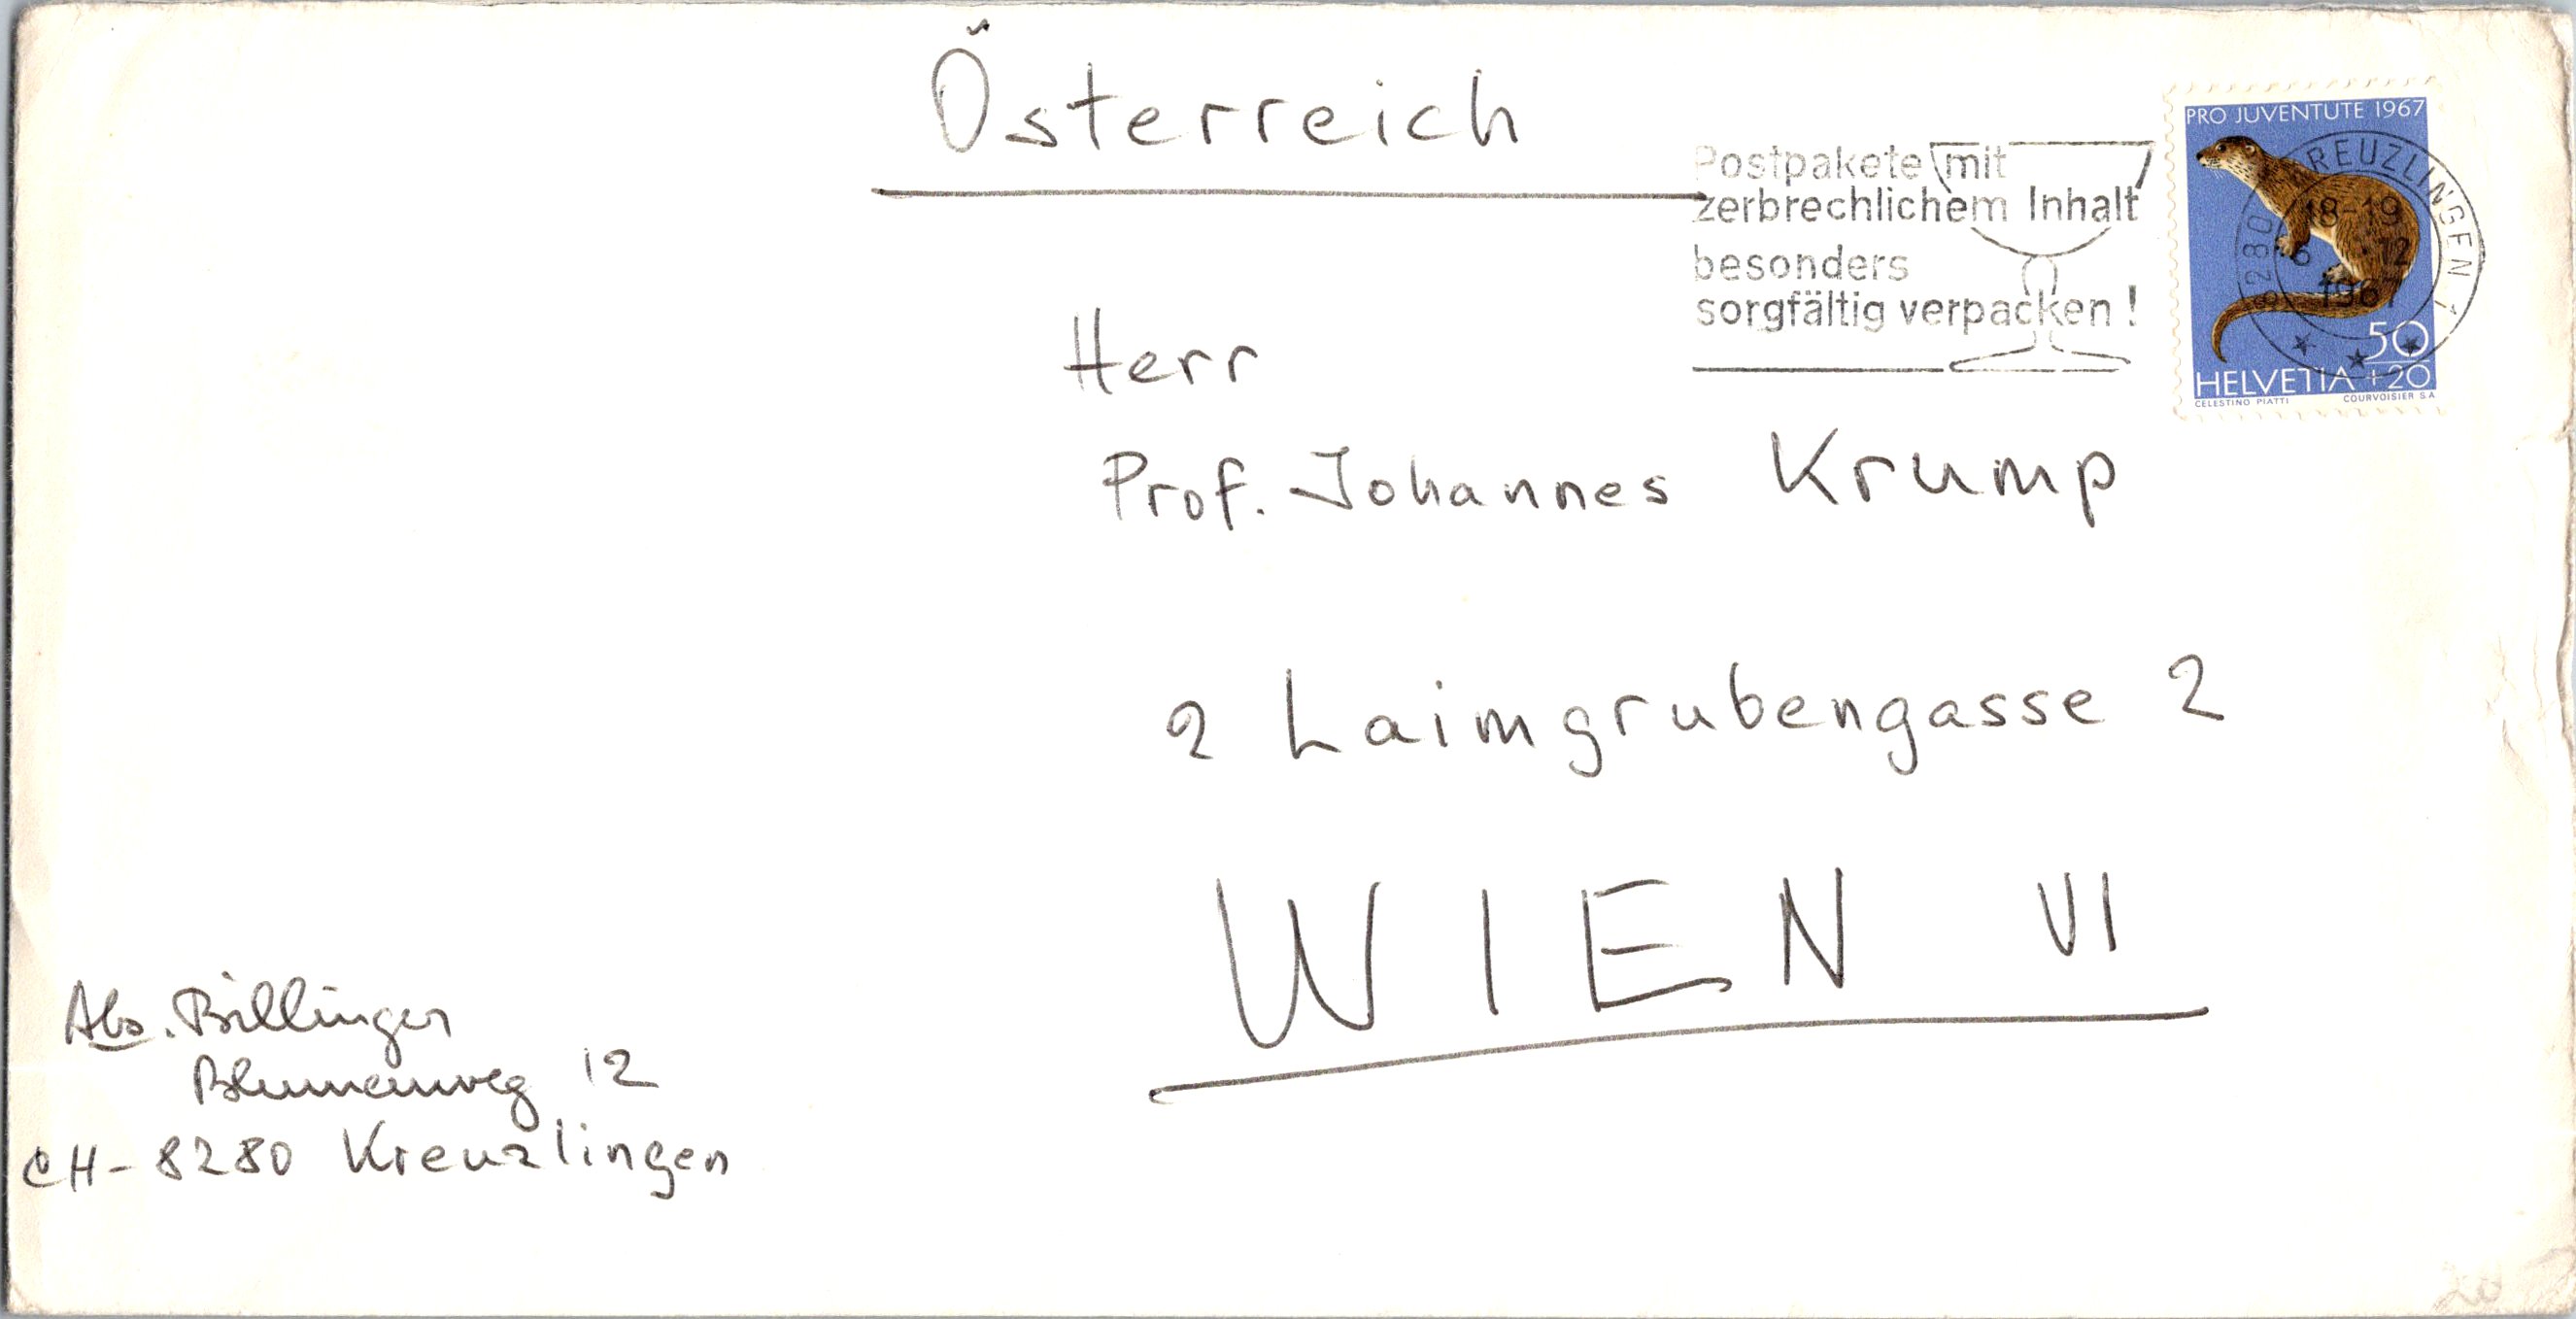 Österreich
Postpakete mit
zerbrechlichem Inhalt
besonders
sorgfältig verpacken !
PRO JUVENTUTE 1967
8280 KREUZLINGEN 1
18-19
6 .12
1967
50
HELVETIA +20
CELESTINO PIATTI COURVOISIER S A
Herr
Prof. Johannes Krump
2 Laimgrubengasse 2
WIEN VI
Abs. Billinger
Blumenweg 12
CH-8280 Kreuzlingen